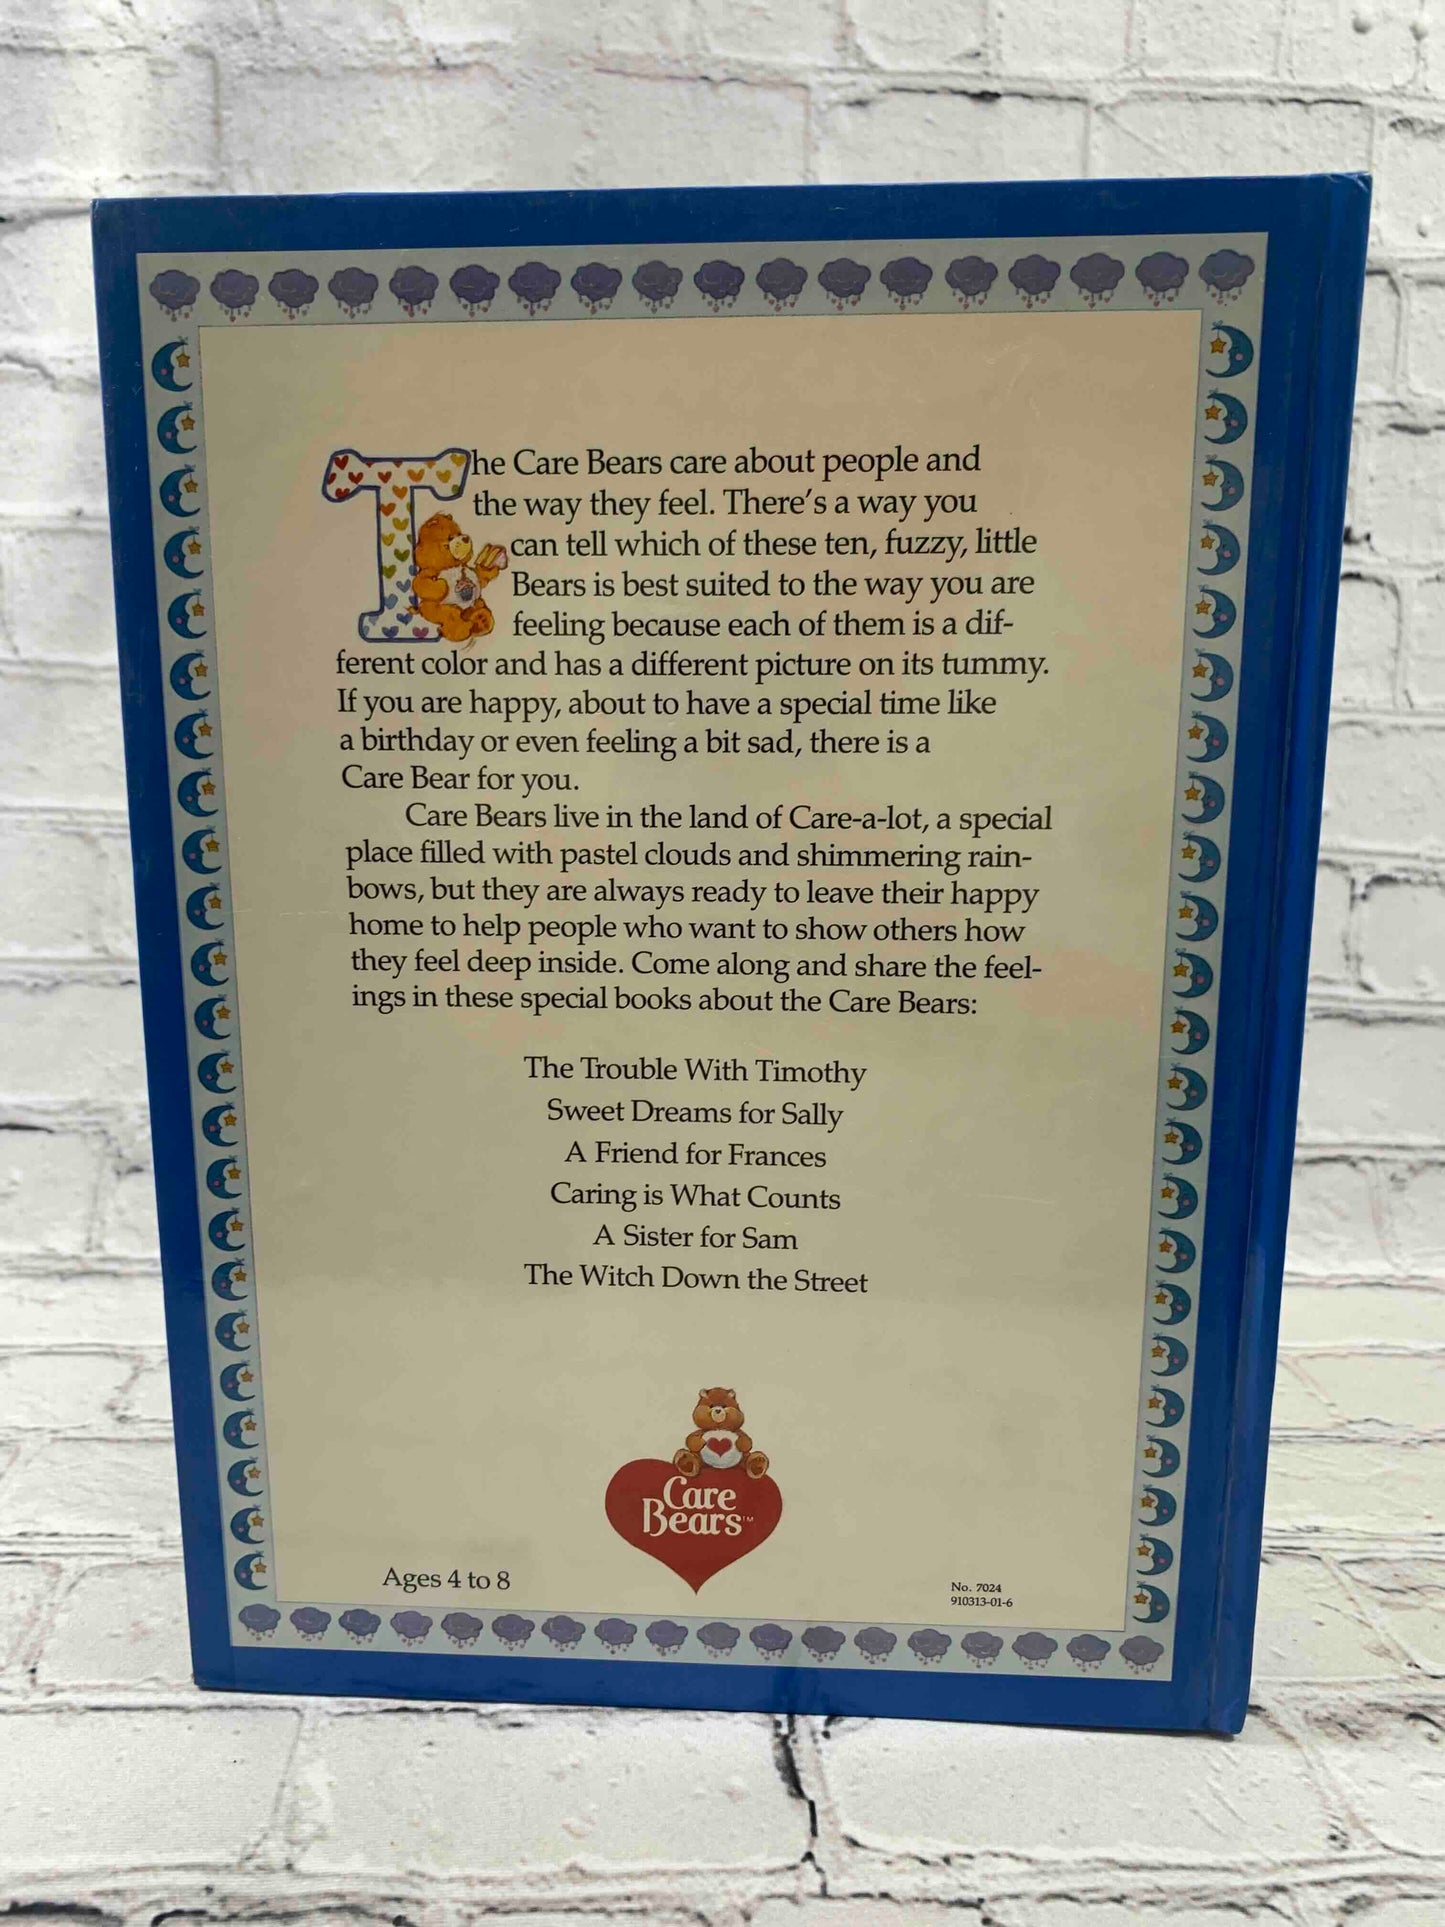 The Care Bears care about people and
the way they feel. There's a way you
can tell which of these ten, fuzzy, little
Bears is best suited to the way you are
feeling because each of them is a dif-
ferent color and has a different picture on its tummy.
If you are happy, about to have a special time like
a birthday or even feeling a bit sad, there is a
Care Bear for you.
Care Bears live in the land of Care-a-lot, a special
place filled with pastel clouds and shimmering rain-
bows, but they are always ready to leave their happy
home to help people who want to show others how
they feel deep inside. Come along and share the feel-
ings in these special books about the Care Bears:
The Trouble With Timothy
Sweet Dreams for Sally
A Friend for Frances
Caring is What Counts
A Sister for Sam
The Witch Down the Street
Care
Bears™
Ages 4 to 8
No. 7024
910313-01-6